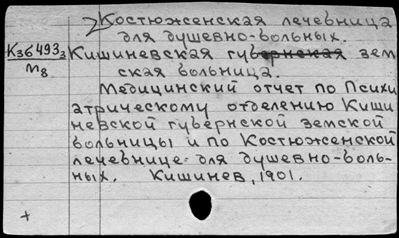 Костюженская лечебница
для душевно-больных.
К36493₃ Кишиневская губернская зем
М8 ская больница.
Медицинский отчет по Психи
атрическому отделению Киши
невской губернской земской
больницы и по Костюженской
лечебнице для душевно-боль-
ных. Кишинев, 1901.
+